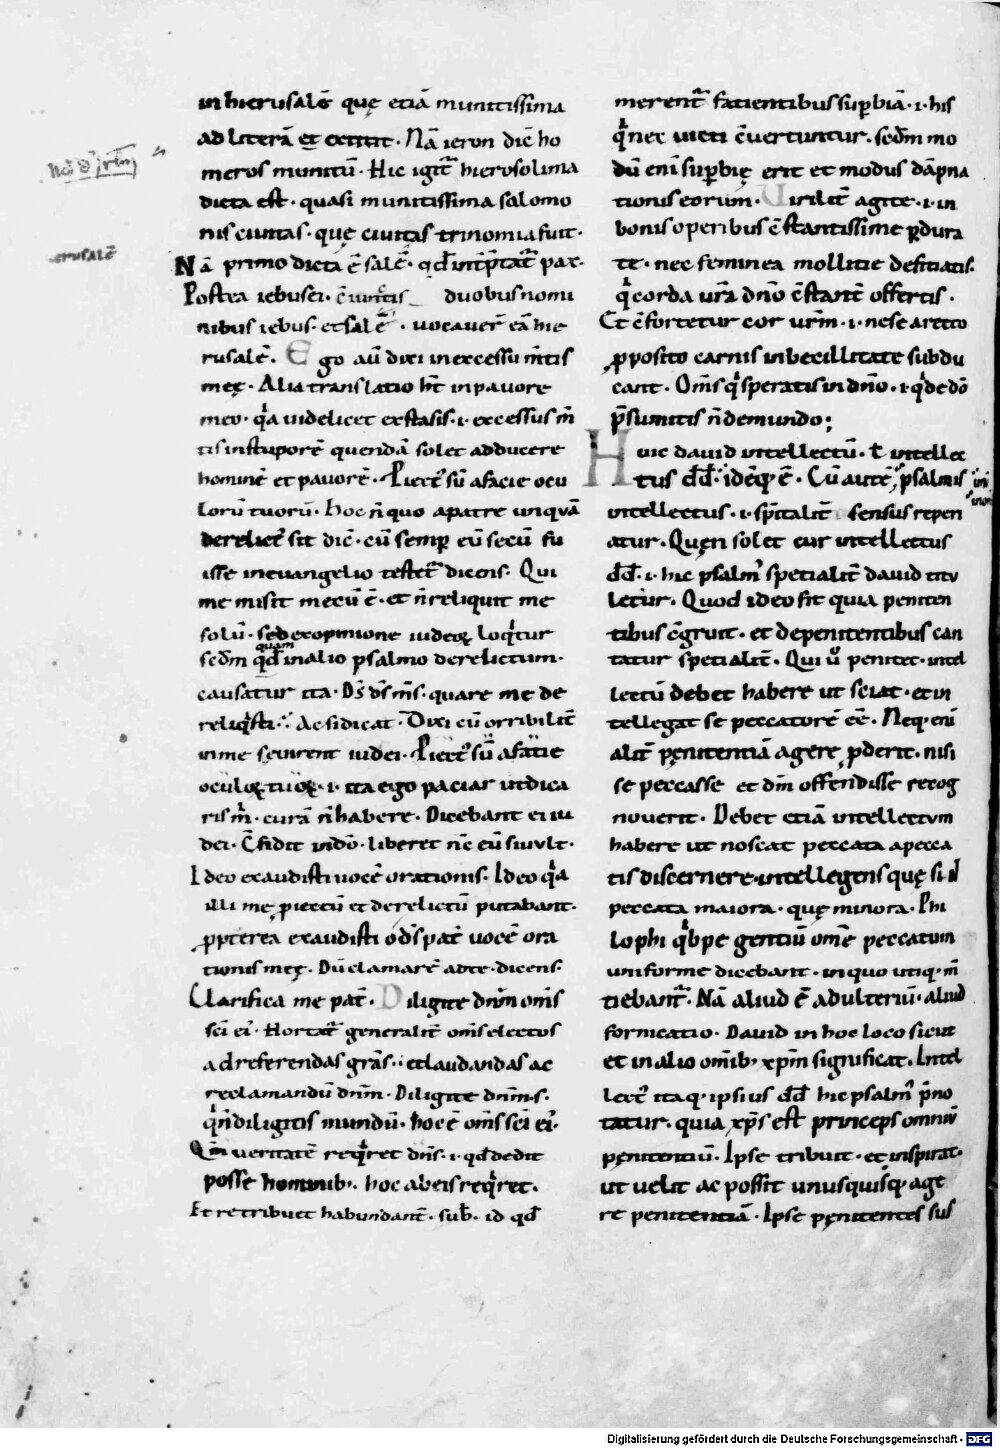 in hierusalē. quę etiā munitissima
ad literā et extitit. Nā ieron dic̄ ho
meros munitū. Hic igit᷑ hierosolima
dicta est. quasi munitissima salomo
nis ciuitas. quę ciuitas trinomia fuit.
Nā primo dicta ē salē. qđ int̄p̄tat᷑ pax.
Postea iebusei. duobus nomi
nibus iebus. et salē. uocauer̄ eā hie
rusalē. Ego aū dixi in excessu m̄tis
meę. Alia translatio h̄t in pauore
meo. qͥa uidelicet exstasis .i. excessus m̄
tis in stuporē quendā solet adducere
hominē et pauorē. Piect᷒ sū a facie ocu
lorū tuorū. Hoc n̄ quo a patre unquā
derelict᷒ sit dic̄. cū semp̄ eū secū fu
isse in euangelio testet᷑ dicens. Qui
me misit mecū ē. et n̄ reliquit me
solū. sed ex opinione iudeoꝝ loqͥtur
scđm quam qđ in alio psalmo derelictum.
causatur ita. Ds̄ ds̄ ms̄. quare me de
reliqͥsti. Ac si dicat. Dixi cū orribilit̄
in me seuirent iudei. Piect᷒ sū a facie
oculoꝝ tuoꝝ .i. ita ergo paciar ut dica
ris m̄. curā n̄ habere. Dicebant ei iu
dei. C̄fidit in dn̄o. liberet nc̄ eū si uult.
Ideo exaudisti uocē orationis. Ideo qͥa
illi me piectū et derelictū putabant.
ꝓpterea exaudisti o ds̄ pat̄ uocē ora
tionis meę. Dū clamarē ad te. dicens.
Clarifica me pat̄. Diligite dnm̄ om̄s
sc̄i ei᷒. Hortat᷑ generalit̄ om̄s electos
ad referendas grās. et laudandas ac
reclamandū dnm̄. Diligite dnm̄ .s.
qͥ n̄ diligitis mundū. hoc ē om̄s sc̄i ei᷒.
Qm̄ ueritatē reqͥret dn̄s .i. qđ dedit
posse hominib᷒. hoc ab eis reqͥret.
Et retribuet habundant̄. sub̄. id qđ
merent᷑ facientibus supbiā .i. his
qͥ nec uicti c̄uertuntur. scđm mo
dū eni superbię erit et modus dāpna
tionis eorum. Uirilit̄ agite .i. in
bonis operibus c̄stantissime pdura
te. nec feminea mollitie deficiatis.
qͥ corda ur̄a dn̄o c̄stant̄ offertis.
Et c̄fortetur cor ur̄m .i. ne se a recto
ꝓposito carnis inbecillitate subdu
cant. Om̄s qͥ speratis in dn̄o .i. qͥ de dō
p̄sumitis n̄ de mundo;
Huic dauid intellectū. ł intellec
tus dđ. idēq᷒ ē. Cū autē psalmis
intellectus .i. sp̄italit̄ sensus repen
atur. Queri solet cur intellectus
dđ .i. hic psalm᷒ specialit̄ dauid titu
letur. Quod ideo fit quia peniten
tibus c̄gruit. et de penitentibus can
tatur specialit̄. Qui ū penitet. intel
lectū debet habere ut sciat. et in
tellegat se peccatorē eē. Neq᷒ eni
alit̄ pęnitentiā agere pderit. nisi
se peccasse et dm̄ offendisse recog
nouerit. Debet etiā intellectum
habere ut noscat peccata a pecca
tis discernere. intellegens quę sint
peccata maiora. quę minora. Phi
losophi qͥppe gentiū om̄e peccatum
uniforme dicebant. in quo utiq᷒ m̄
tiebant᷑. Nā aliud ē adulteriū. aliud
fornicatio. Dauid in hoc loco sicut
et in alio om̄ib᷒ xp̄m significat. Intel
lect᷒ itaq᷒ ipsius dđ hic psalm᷒ p̄no
tatur. quia xp̄s est princeps omniū
pęnitentiū. Ipse tribuit. et inspirat.
ut uelit ac possit unusquisq᷒ age
re penitentiā. Ipse pęnitentes sus
Digitalisierung gefördert durch die Deutsche Forschungsgemeinschaft - DFG